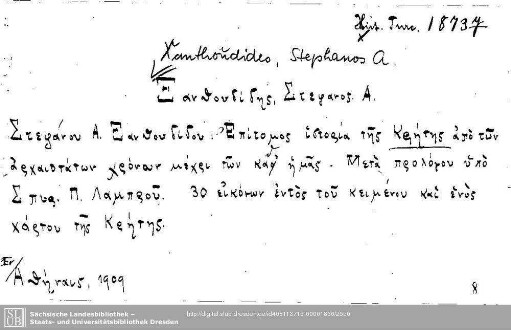 Hist. Turc. 1873
Xanthoudides, Stephanos A.
Ξανθουδίδης, Στέφανος Α.
Στεφάνου Α. Ξανθουδίδου: Ἐπίτομος ἱστορία τῆς Κρήτης ἀπὸ τῶν
ἀρχαιοτάτων χρόνων μέχρι τῶν καθ' ἡμᾶς. Μετὰ προλόγου ὑπὸ
Σπυρ. Π. Λάμπρου. 30 εἰκόνων ἐντὸς τοῦ κειμένου καὶ ἑνὸς
χάρτου τῆς Κρήτης.
Ἀθήναις, 1909
8
Sächsische Landesbibliothek –
Staats- und Universitätsbibliothek Dresden